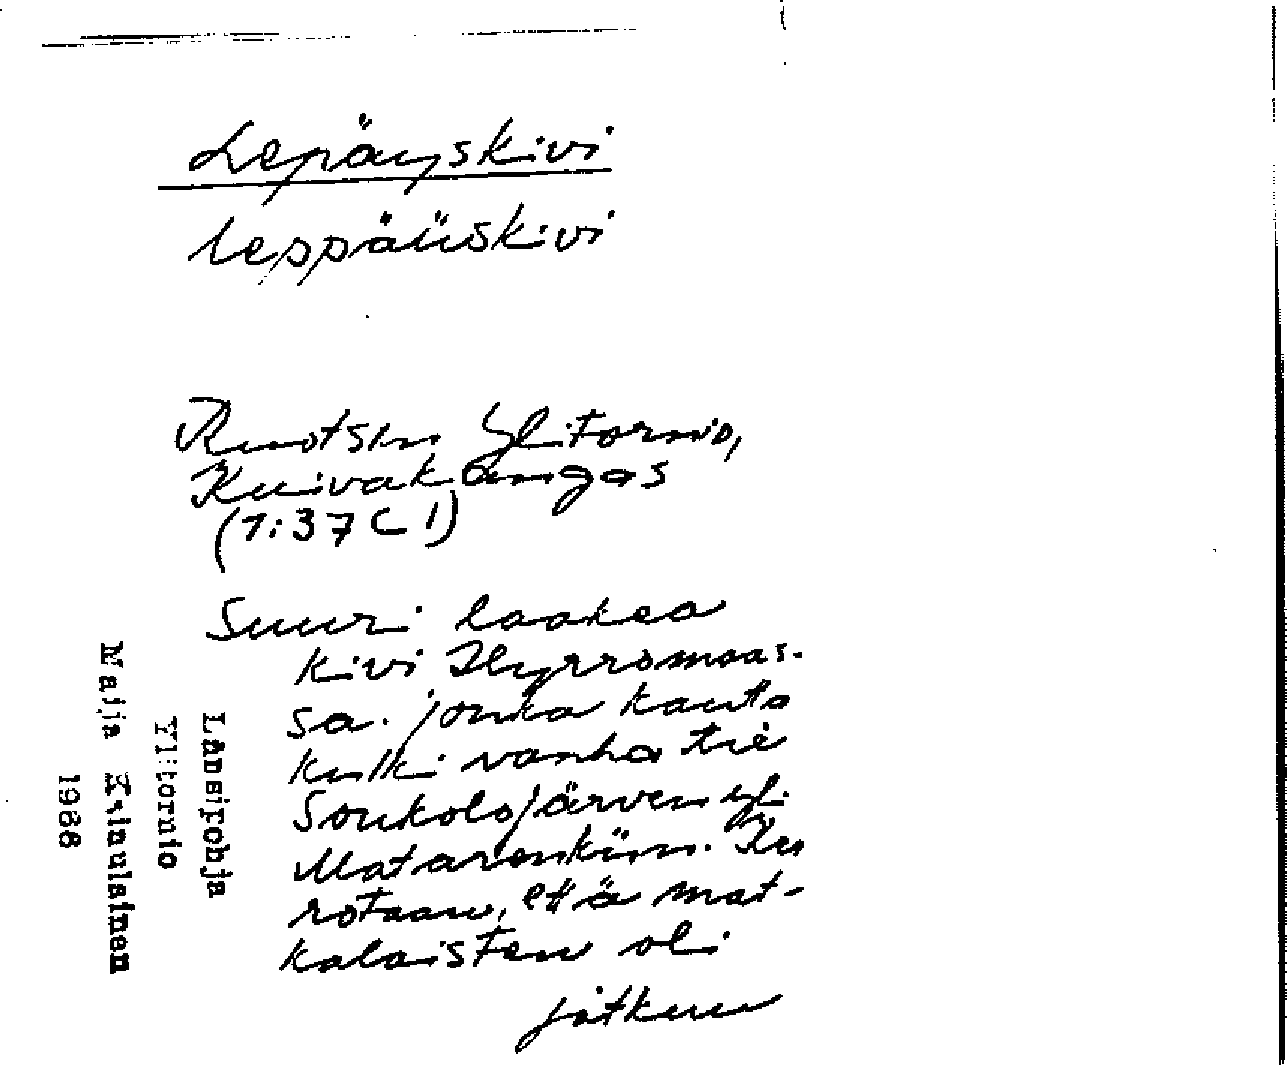 Lepäyskivi
leppäüskivi
Ruotsin Ylitornio,
Kuivakangas
(1:37 C 1)
Suuri laakea
kivi Hyrrömaas-
sa. jonka kautta
kulki vanha tie
Soukolojärven yli
Matarenkiin. Ku
rotaan, että mat-
kalaisten oli
jatkuu
Länsipohja
Ylitornio
Maija Kainulainen
1988